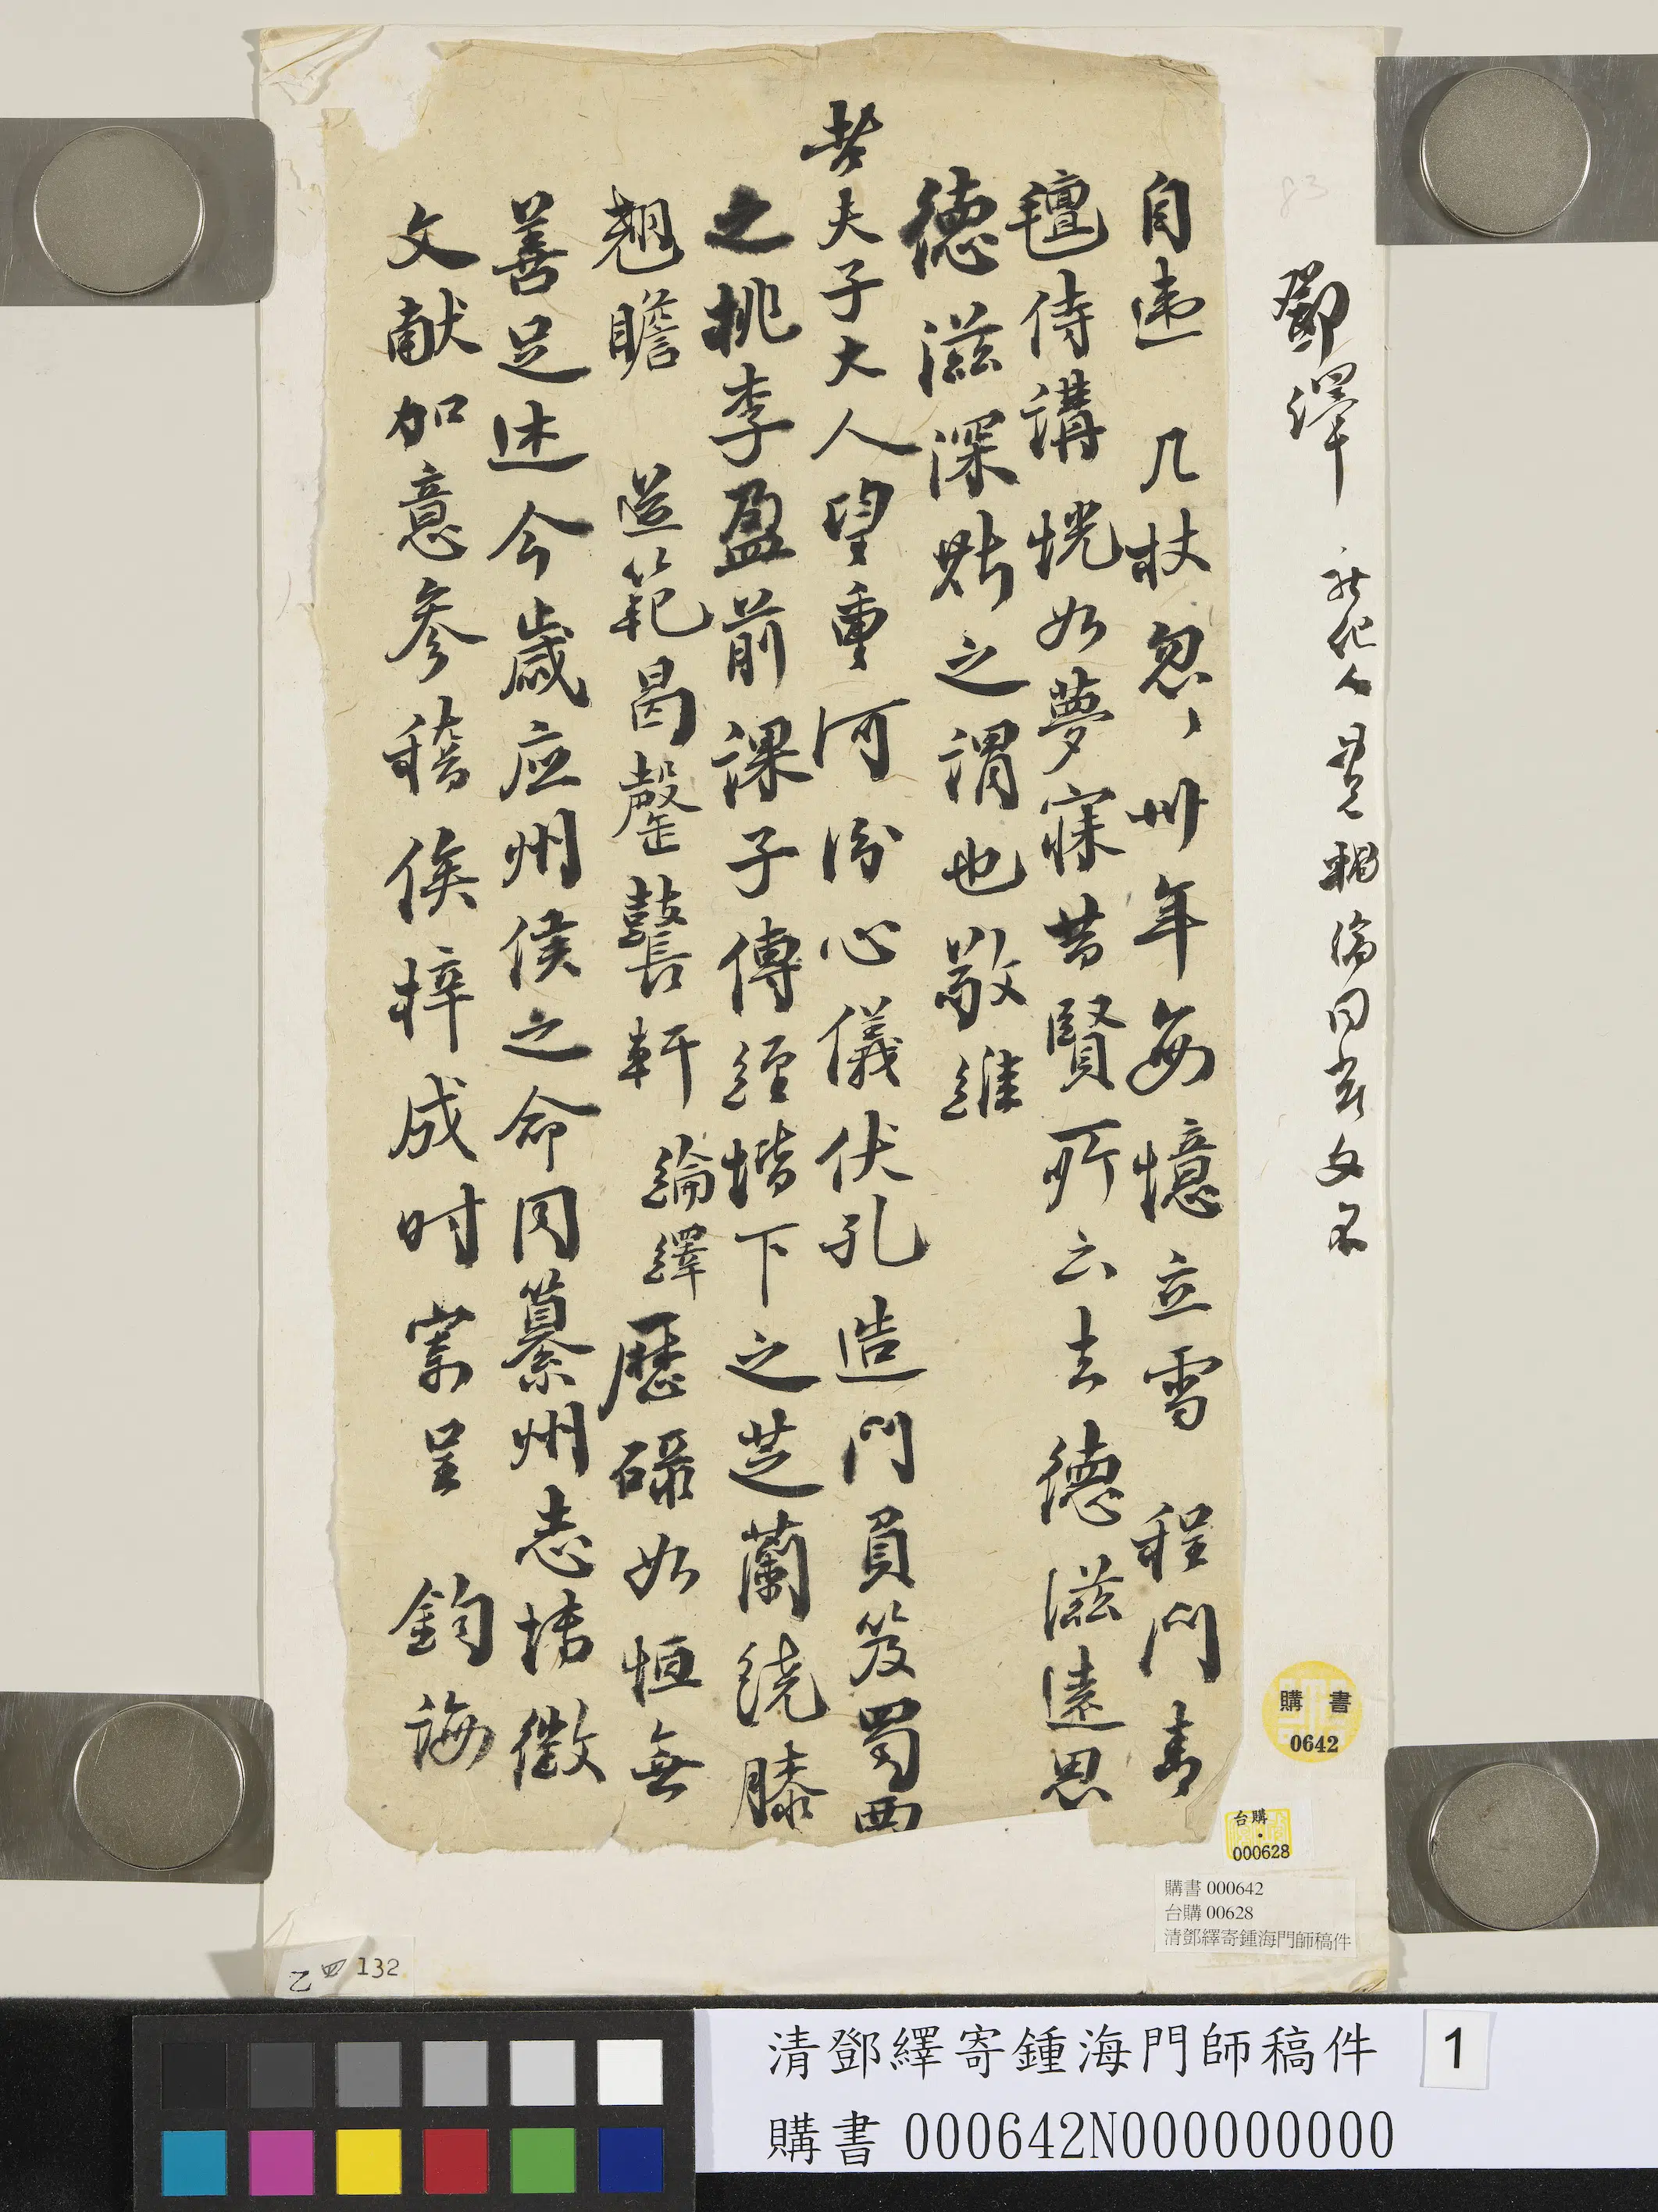 鄧繹 新化人 其兄輔綸同當文名
自違 几杖忽、卅年每憶立雪 程門青
氊侍講恍如夢寐昔賢所云去德滋遠思
德滋深

之謂也敬維
夫子大人望重河汾心儀伏孔造門負笈蜀西
之桃李盈前課子傳經堦下之芝蘭繞膝
翹瞻 道範曷罄鼚軒 綸繹歷碌如恒無
善足述今歲应州侯之命同纂州志採徵
文献加意參稽俟梓成时寄呈 鈞誨
購書
0642
台購
000628
購書 000642
台購 00628
清鄧繹寄鍾海門師稿件
乙四 132
清鄧繹寄鍾海門師稿件 1
購書 000642N000000000